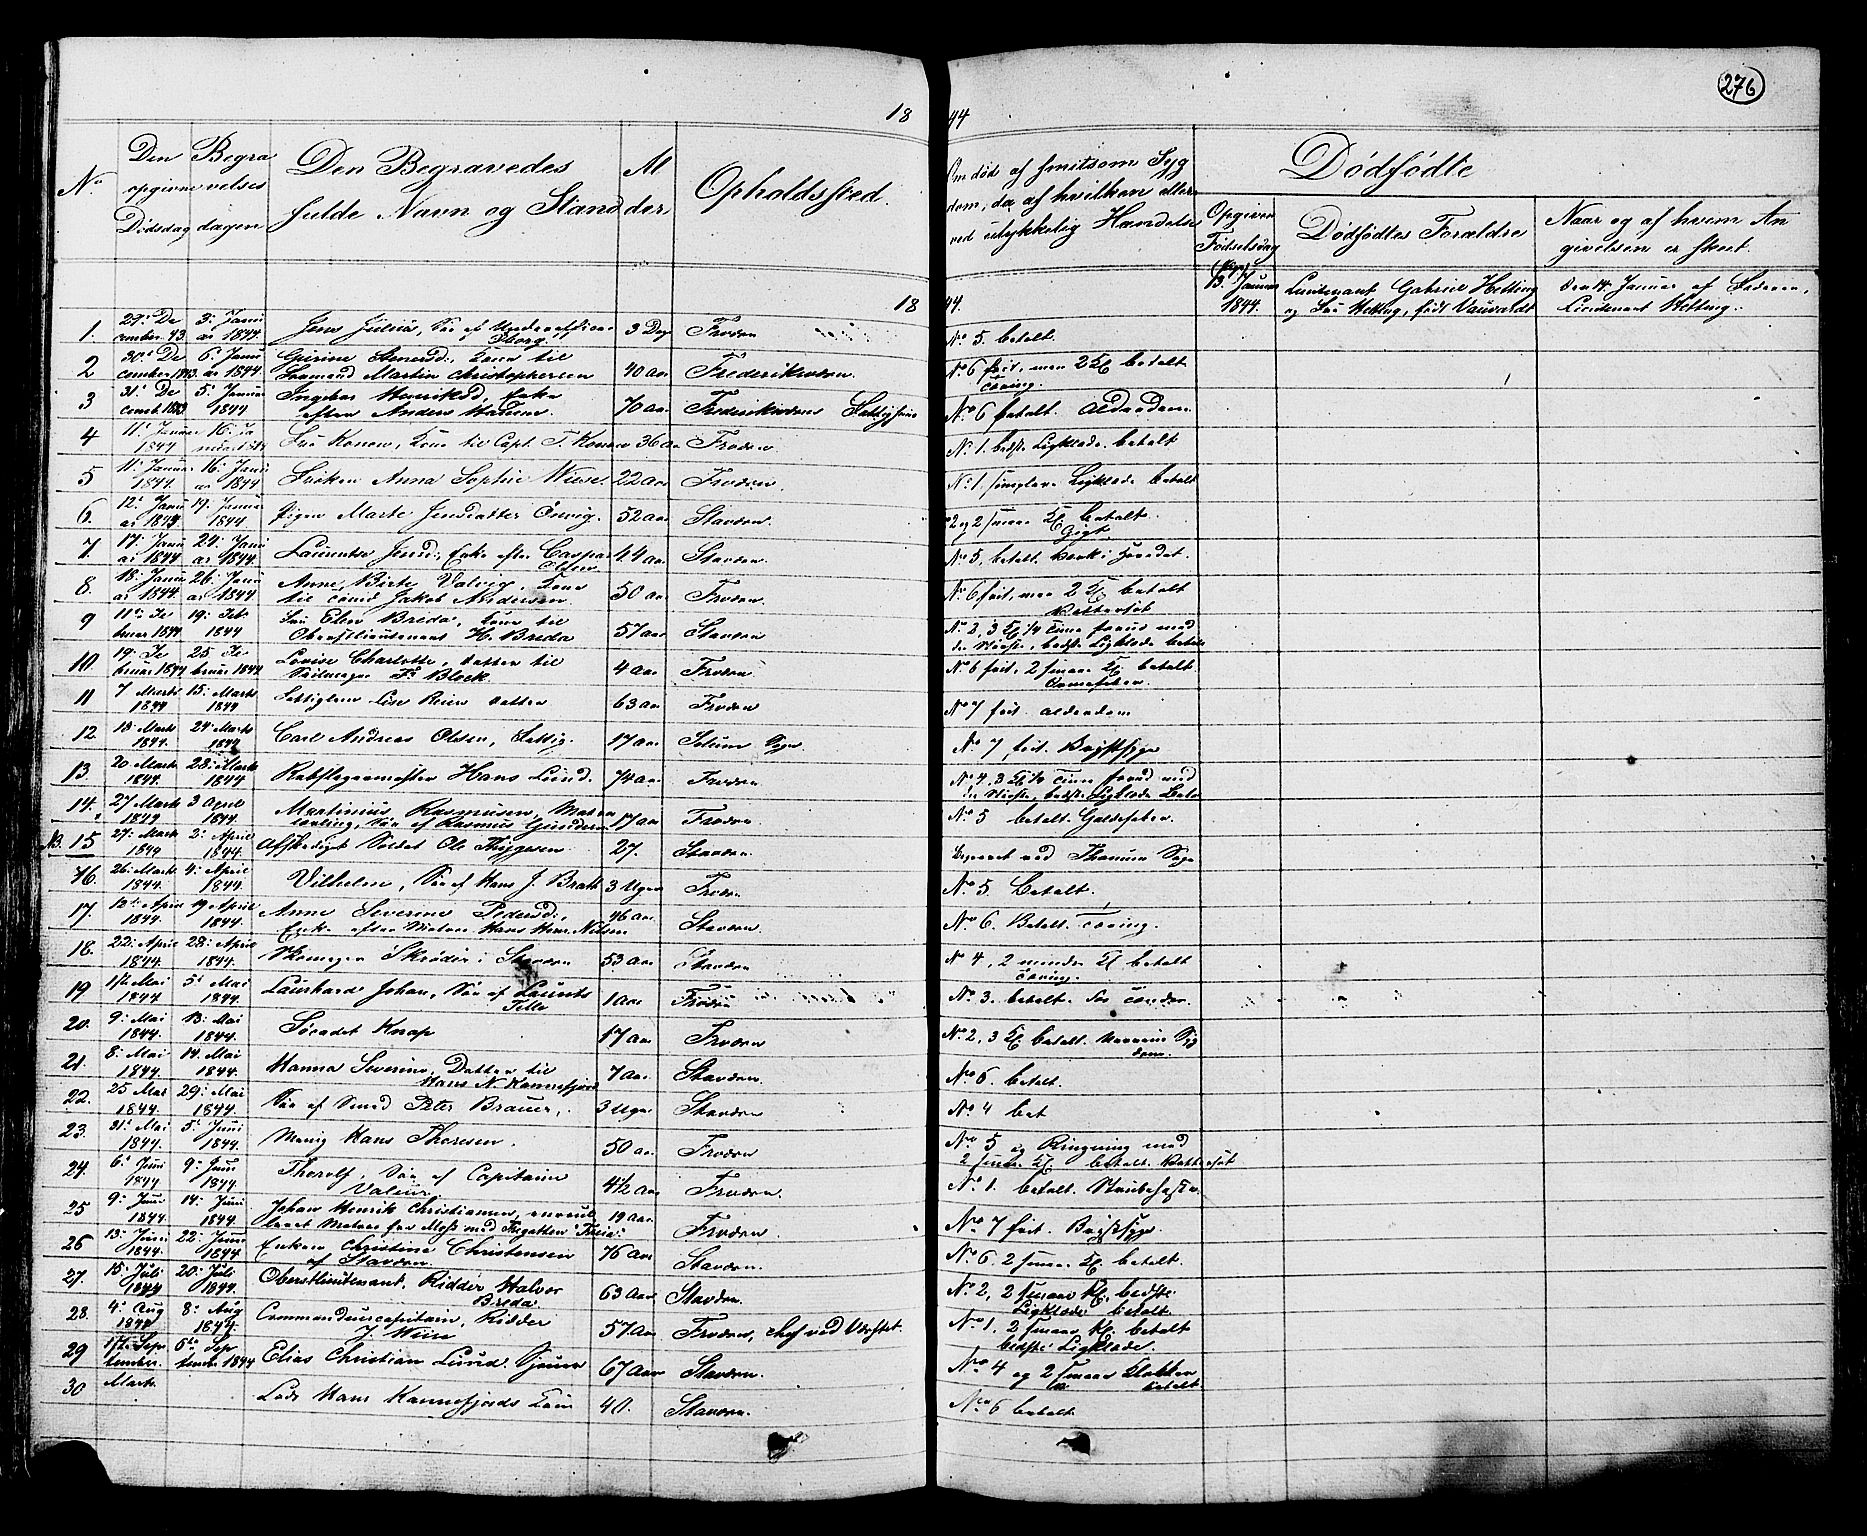 276
18 44
No
Den opgivne Dødsdag
Begravelsesdagen
Den Begravedes fulde Navn og Stand
Alder
Opholdssted.
Om død af smitsom Sygdom, da af hvilken eller ved ulykkelig Hændelse
Dødfødte
Opgiven Fødselsdag
Dødfødtes Forældre
Naar og af hvem Angivelsen er skeet.
18 44.
13. Januar 1844. Lieutenant Gabriel Hetting og Fru Hetting, født den 14 Januar af Faderen, Lieutenant Hetting.
1. 29: December 43. 3: Januar 1844. Jens Julius, Søn af Underofficeer Borg 3 Dage Frværn No 5. betalt.
2 30: December 1843. 6: Januar 1844. Gurine Kone til Martin Christophersen 40 Aar Frederiksværn. No 6 frit, men 2 Kl. betalt Tæring.
3 31: Decemb 1843 5: Januar 1844 Ingebor Henriksd., Enke efter Anders 70 Aar Frederiksværns No 6 betalt. Alderdom
4 11: Januar 1844 16: Januar 1844 Fru Konow, Kone til Capt. T. Konow 36 Aar Frværn No 1. bedste Ligklæde. betalt
5 11: Januar 1844. 16: Januar 1844 Frøken Anna Sophie Wiese. 22 Aar Frværn. No 1. simplere Ligklæde betalt
6. 12: Januar 1844 19: Januar 1844 Pigen Marte Jensdatter Ørvig. 52 Aar Staværn. 2 smaae Kl. betalt. Gigt
7. 17: Januar 1844 24: Januar 1844. Enke efter Caspar Olsen 44 Aar Staværn. No 5, betalt.
8. 18: Januar 1844. 26: Januar 1844 Anne Birte Valvig, Kone til Jakob Andersen. 50 Aar Frværn. No 6 frit, men 2 Kl. betalt Vattersot
9 11: Februar 1844. 19: Feb 1844 Fru Elen Breda, Kone til Oberstlieutenant H. Breda 57 Aar Staværn. No 2, 3 Kl. 1/4 Time forud med de største, bedste Ligklæde betalt
10. 19: Februar 1844 25 Februar 1844 Lovise Charlotte, Datter til Block. 4 Aar Frværn. No 6 frit. 2 smaae Kl. betalt.
11 7 Marts 1844 15: Marts 1844 Lise Reier Datter 63 Aar Frværn No 7 frit. Alderdom
12. 13: Marts 1844. 24: Marts 1844 Carl Andreas Olsen, Fattig. 17 Aar Solum Sogn No 7, frit. Brystsyge
13. 20 Marts 1844. 28: Marts 1844 Rebslagermester Hans Lund. 74 Aar Frværn No 4, 3 Kl. 1/2 Time forud med de største, bedste Ligklæde Betalt
14. 27 Marts 1844 3 April 1844. Martinius Rasmusen, Søn af Rasmus 17 Aar Frværn. No 5 betalt. Galdefeber.
NB. 15 27: Marts 1844 2: April 1844. Afskediget Soldat Ole 27. Staværn. Begravet ved Sogn
16. 26: Marts 1844. 4: April 1844. Vilhelm, Søn af Hans J. Bratt 3 Uger Frværn. No 5. Betalt.
17. April 1844. 19 April 1844. Anne Severine Pedersd., Enke efter Matros Hans Nilsen 46 Aar Staværn. No 6. Betalt. Tæring.
18. 22: April 1844. 28: April 1844. Skomager Skrøder i Staværn 53 Aar Staværn No 4, 2 mindre Kl betalt Tæring.
19 1ste Mai 1844. 5: Mai 1844. Laurhard Johan, Søn af Laurits 1 Aar Frværn No 3. betalt.
20. 9: Mai 1844. 13: Mai 1844. Søcadet Knap 17 Aar Frværn No 2, 3 Kl. betalt.
21. 8: Mai 1844. 14: Mai 1844. Hanna Severine, Datter til Hans N. Kannefjord 7 Aar Staværn No 6. betalt.
22. 25 Mai 1844. 29: Mai 1844. Søn af Smed Peter Brauer. 3 Uger Staværn No 4 bet
23. 31: Mai 1844. 5: Juni 1844. Hans Thoresen. 50 Aar Frværn No 5 og Ringning med 2 smaae Kl. betalt. Vattersot
24. 6: Juni 1844 9: Juni 1844 Thorolf, Søn af Capitain Valeur 4 1/2 Aar Frværn. No 1. betalt.
25 9: Juni 1844. 14: Juni 1844. Johan Henrik Christiansen, Matros fra Moss med Fregatten Freia. 19 Aar Frværn. No 7 frit. Brystsyge.
26 13: Juni 1844. 22: Juni 1844 Enken Christine Christensen af Staværn 76 Aar Staværn. No 6. 2 smaae Kl. betalt.
27. 15: Juli 1844 20: Juli 1844. Oberstlieutenant, Ridder Halvor Breda 63 Aar Staværn. No 2, 2 smaae Kl, bedste Ligklæde betalt.
28. 4: Aug 1844 8: Aug 1844. Commandeurcapitain, Ridder J. Wiese 57 Aar Frværn, chef ved Værftet. No 1, 2 smaae Kl. betalt bedste Ligklæde.
29 1ste September. 6te September 1844 Elias Christian Lund. 67 Aar Staværn. No 4 og 2 smaae Klokker betalt
30 Marts Hans Kannefjords 40. Staværn. No 6 betalt.